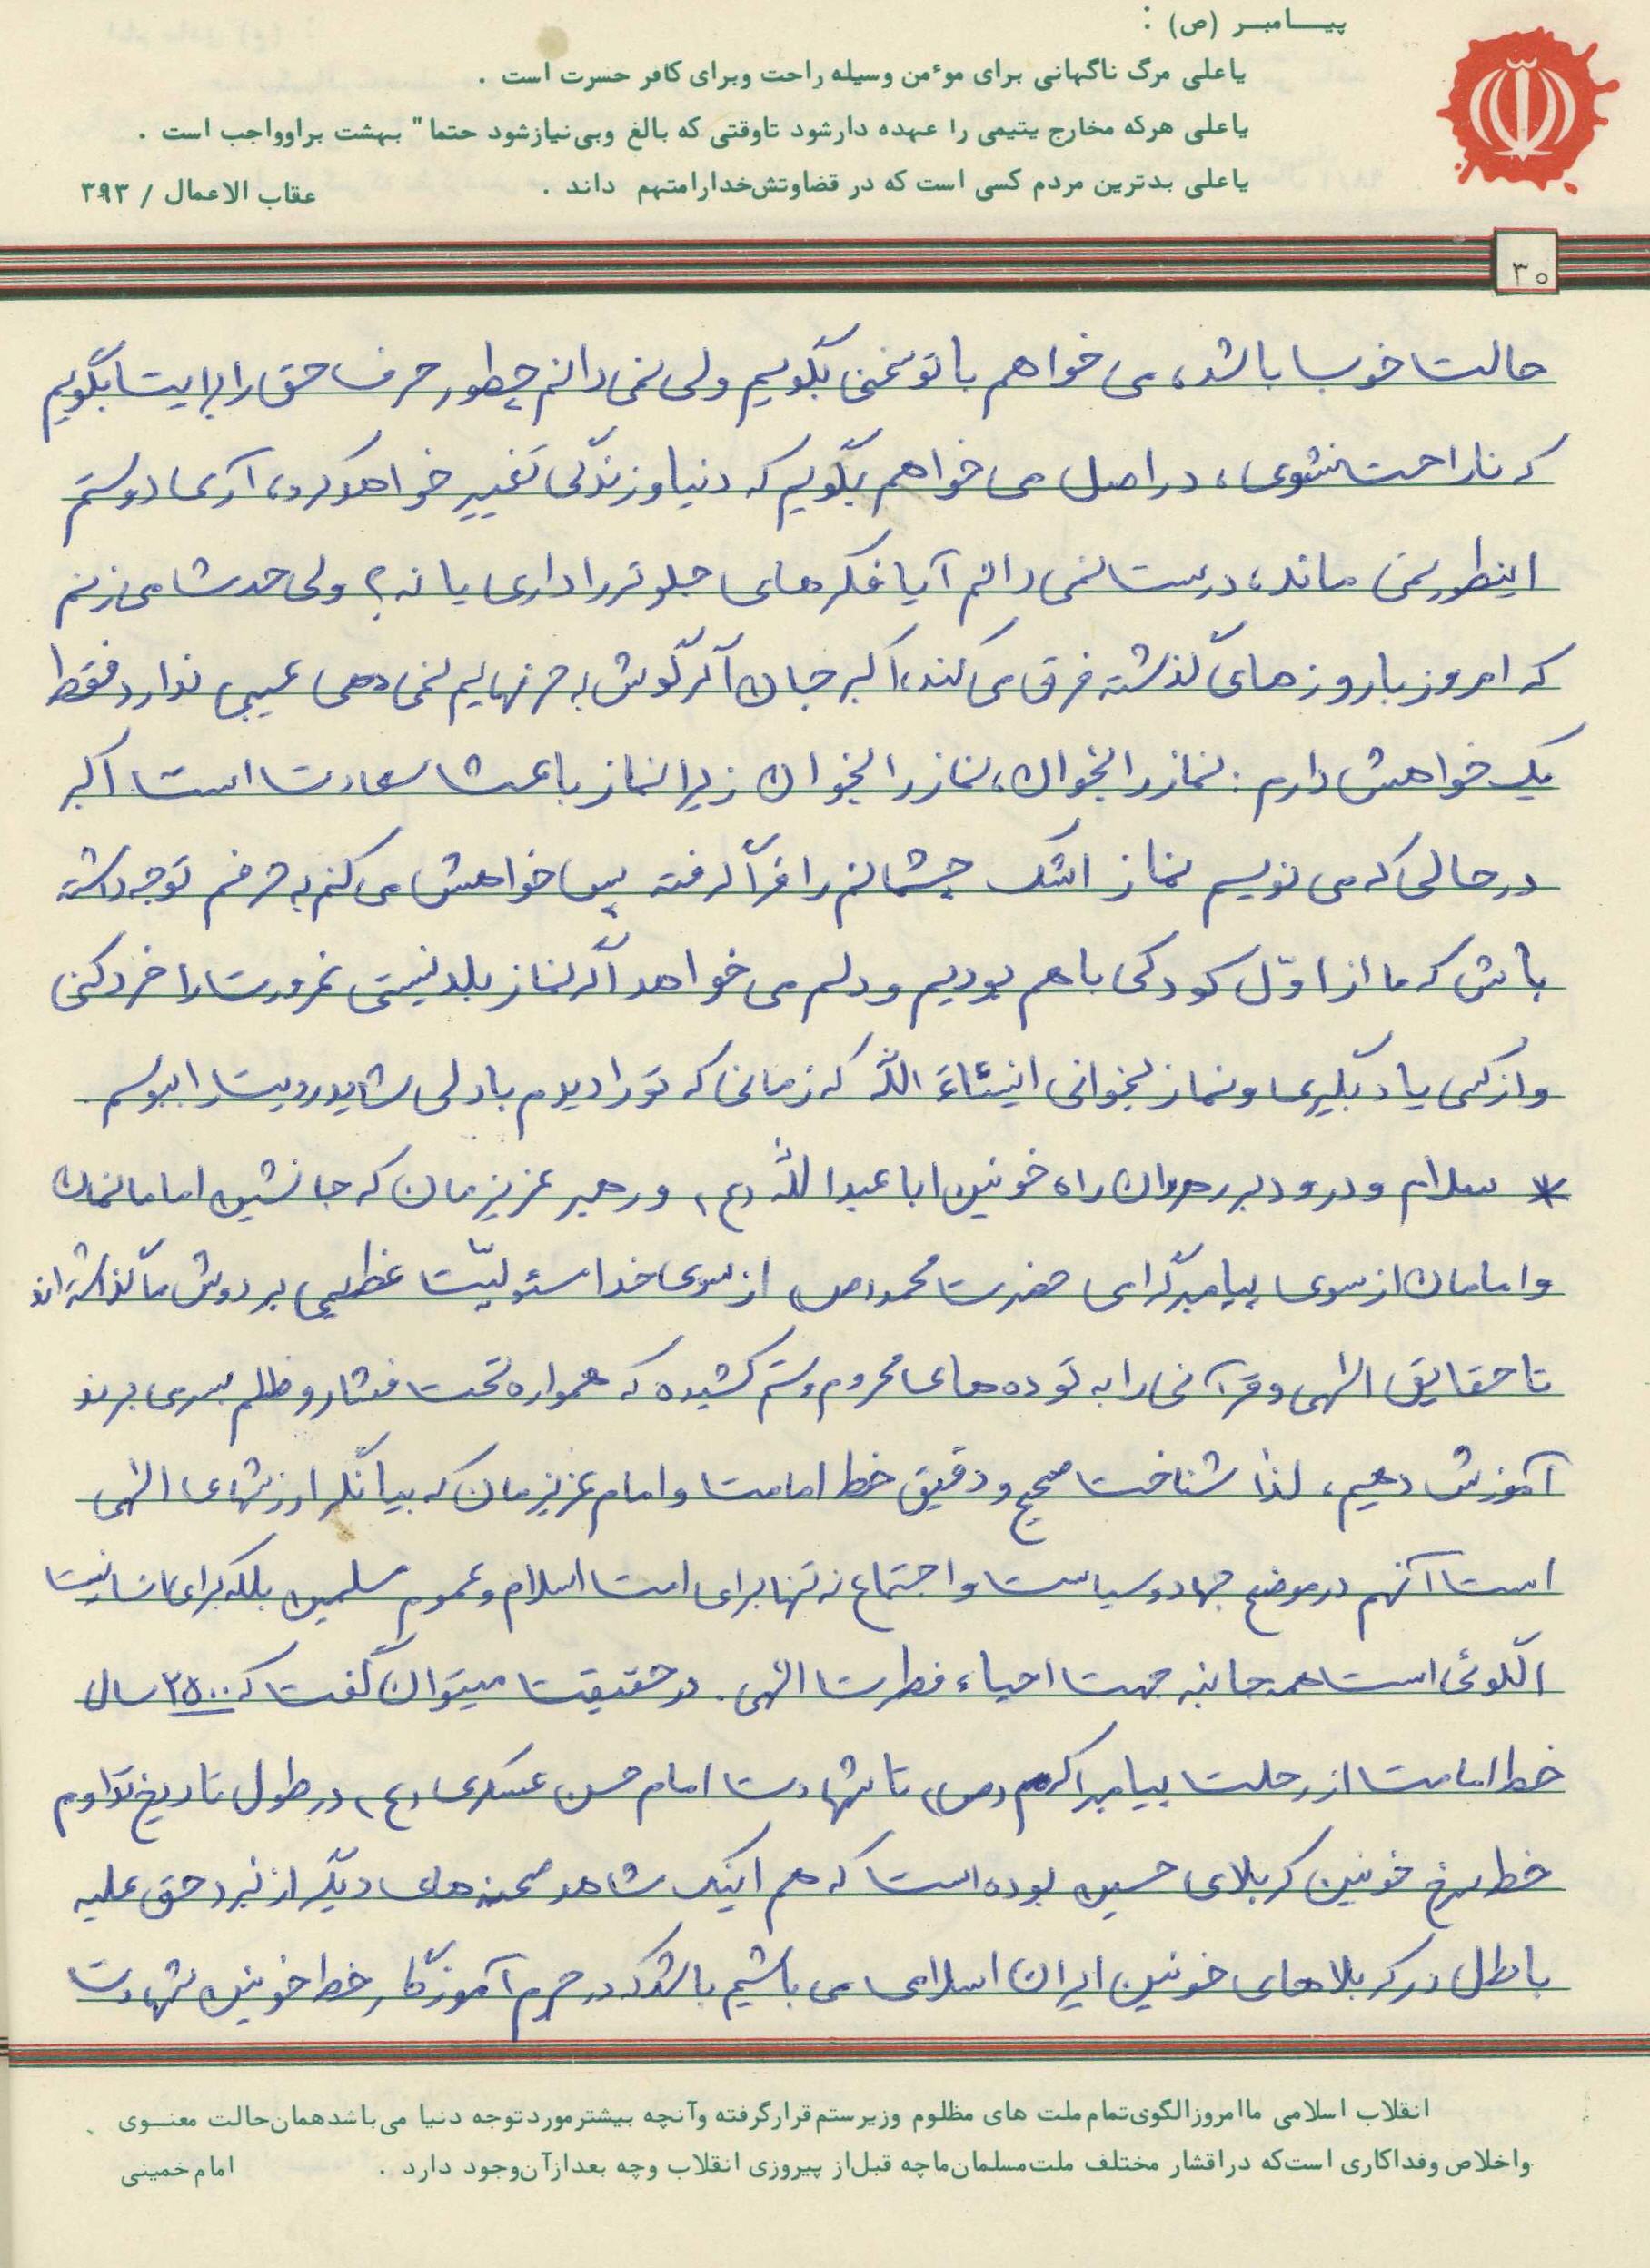 پیـــامبـر (ص) :
یاعلی مرگ ناگهانی برای موءمن وسیله راحت وبرای کافر حسرت است .
یاعلی هرکه مخارج یتیمی را عهده دارشود تاوقتی که بالغ وبی‌نیازشود حتما" بهشت براوواجب است .
یاعلی بدترین مردم کسی است که در قضاوتش‌خدارامتهم داند . عقاب الاعمال / ۳۹۳
۳۰
حالت خوب باشد، می خواهم با تو سخنی بگویم ولی نمی دانم چطور حرف حق را برایت بگویم
که ناراحت نشوی، در اصل می خواهم بگویم که دنیا و زندگی تغییر خواهد کرد، آری دوستم
اینطور نمی ماند، درست نمی دانم آیا فکرهای جلوتر را داری یا نه؟ ولی حدس می زنم
که امروز با روزهای گذشته فرق می کند، اکبر جان اگر گوش به حرفهایم نمی دهی عیبی ندارد فقط
یک خواهش دارم: نماز را بخوان، نماز را بخوان زیرا نماز باعث سعادت است اکبر
در حالی که می نویسم نماز اشک چشمانم را فرا گرفته پس خواهش می کنم به حرفم توجه داشته
باش که ما از اوّل کودکی با هم بودیم و دلم می خواهد اگر نماز بلد نیستی غرورت را خرد کنی
و از کسی یاد بگیری و نماز بخوانی انیشاءَ اللّه که زمانی که تو را دیدم با دلی شاید رویت را ببوسم.
* سلام و درود بر رهروان راه خونین ابا عبداللّه (ع) و رهبر عزیزمان که جانشین امامانمان
و امامان از سوی پیامبر گرامی حضرت محمد (ص) از سوی خدا مسئولیّت عظیمی بر دوش ما گذاشته اند
تا حقایق الهی و قرآنی را به توده های محروم و ستم کشیده که همواره تحت فشار و ظلم بسر می برند
آموزش دهیم، لذا شناخت صحیح و دقیق خط امامت و امام عزیزمان که بیانگر ارزشهای الهی
است آنهم در موضع جهاد و سیاست و اجتماع نه تنها برای امت اسلام و عموم مسلمین بلکه برای انسانیت
الگوئی است همه جانبه جهت احیاء فطرت الهی. در حقیقت میتوان گفت که ۲۵۰۰ سال
خط امامت از رحلت پیامبر اکرم (ص) تا شهادت امام حسن عسکری (ع) در طول تاریخ تداوم
خط سرخ خونین کربلای حسین بوده است که هم اینک شاهد صحنه های دیگر از نبرد حق علیه
باطل در کربلاهای خونین ایران اسلامی می باشیم باشد که در حرم آموزگار خط خونین شهادت
انقلاب اسلامی ماامروزالگوی‌تمام‌ملت های مظلوم وزیرستم‌قرارگرفته وآنچه بیشترموردتوجه دنیا می‌باشدهمان‌حالت معنـوی
واخلاص وفداکاری است‌که دراقشار مختلف ملت‌مسلمان‌ماچه قبل‌از پیروزی انقلاب وچه بعدازآن‌وجود دارد . امام‌خمینی